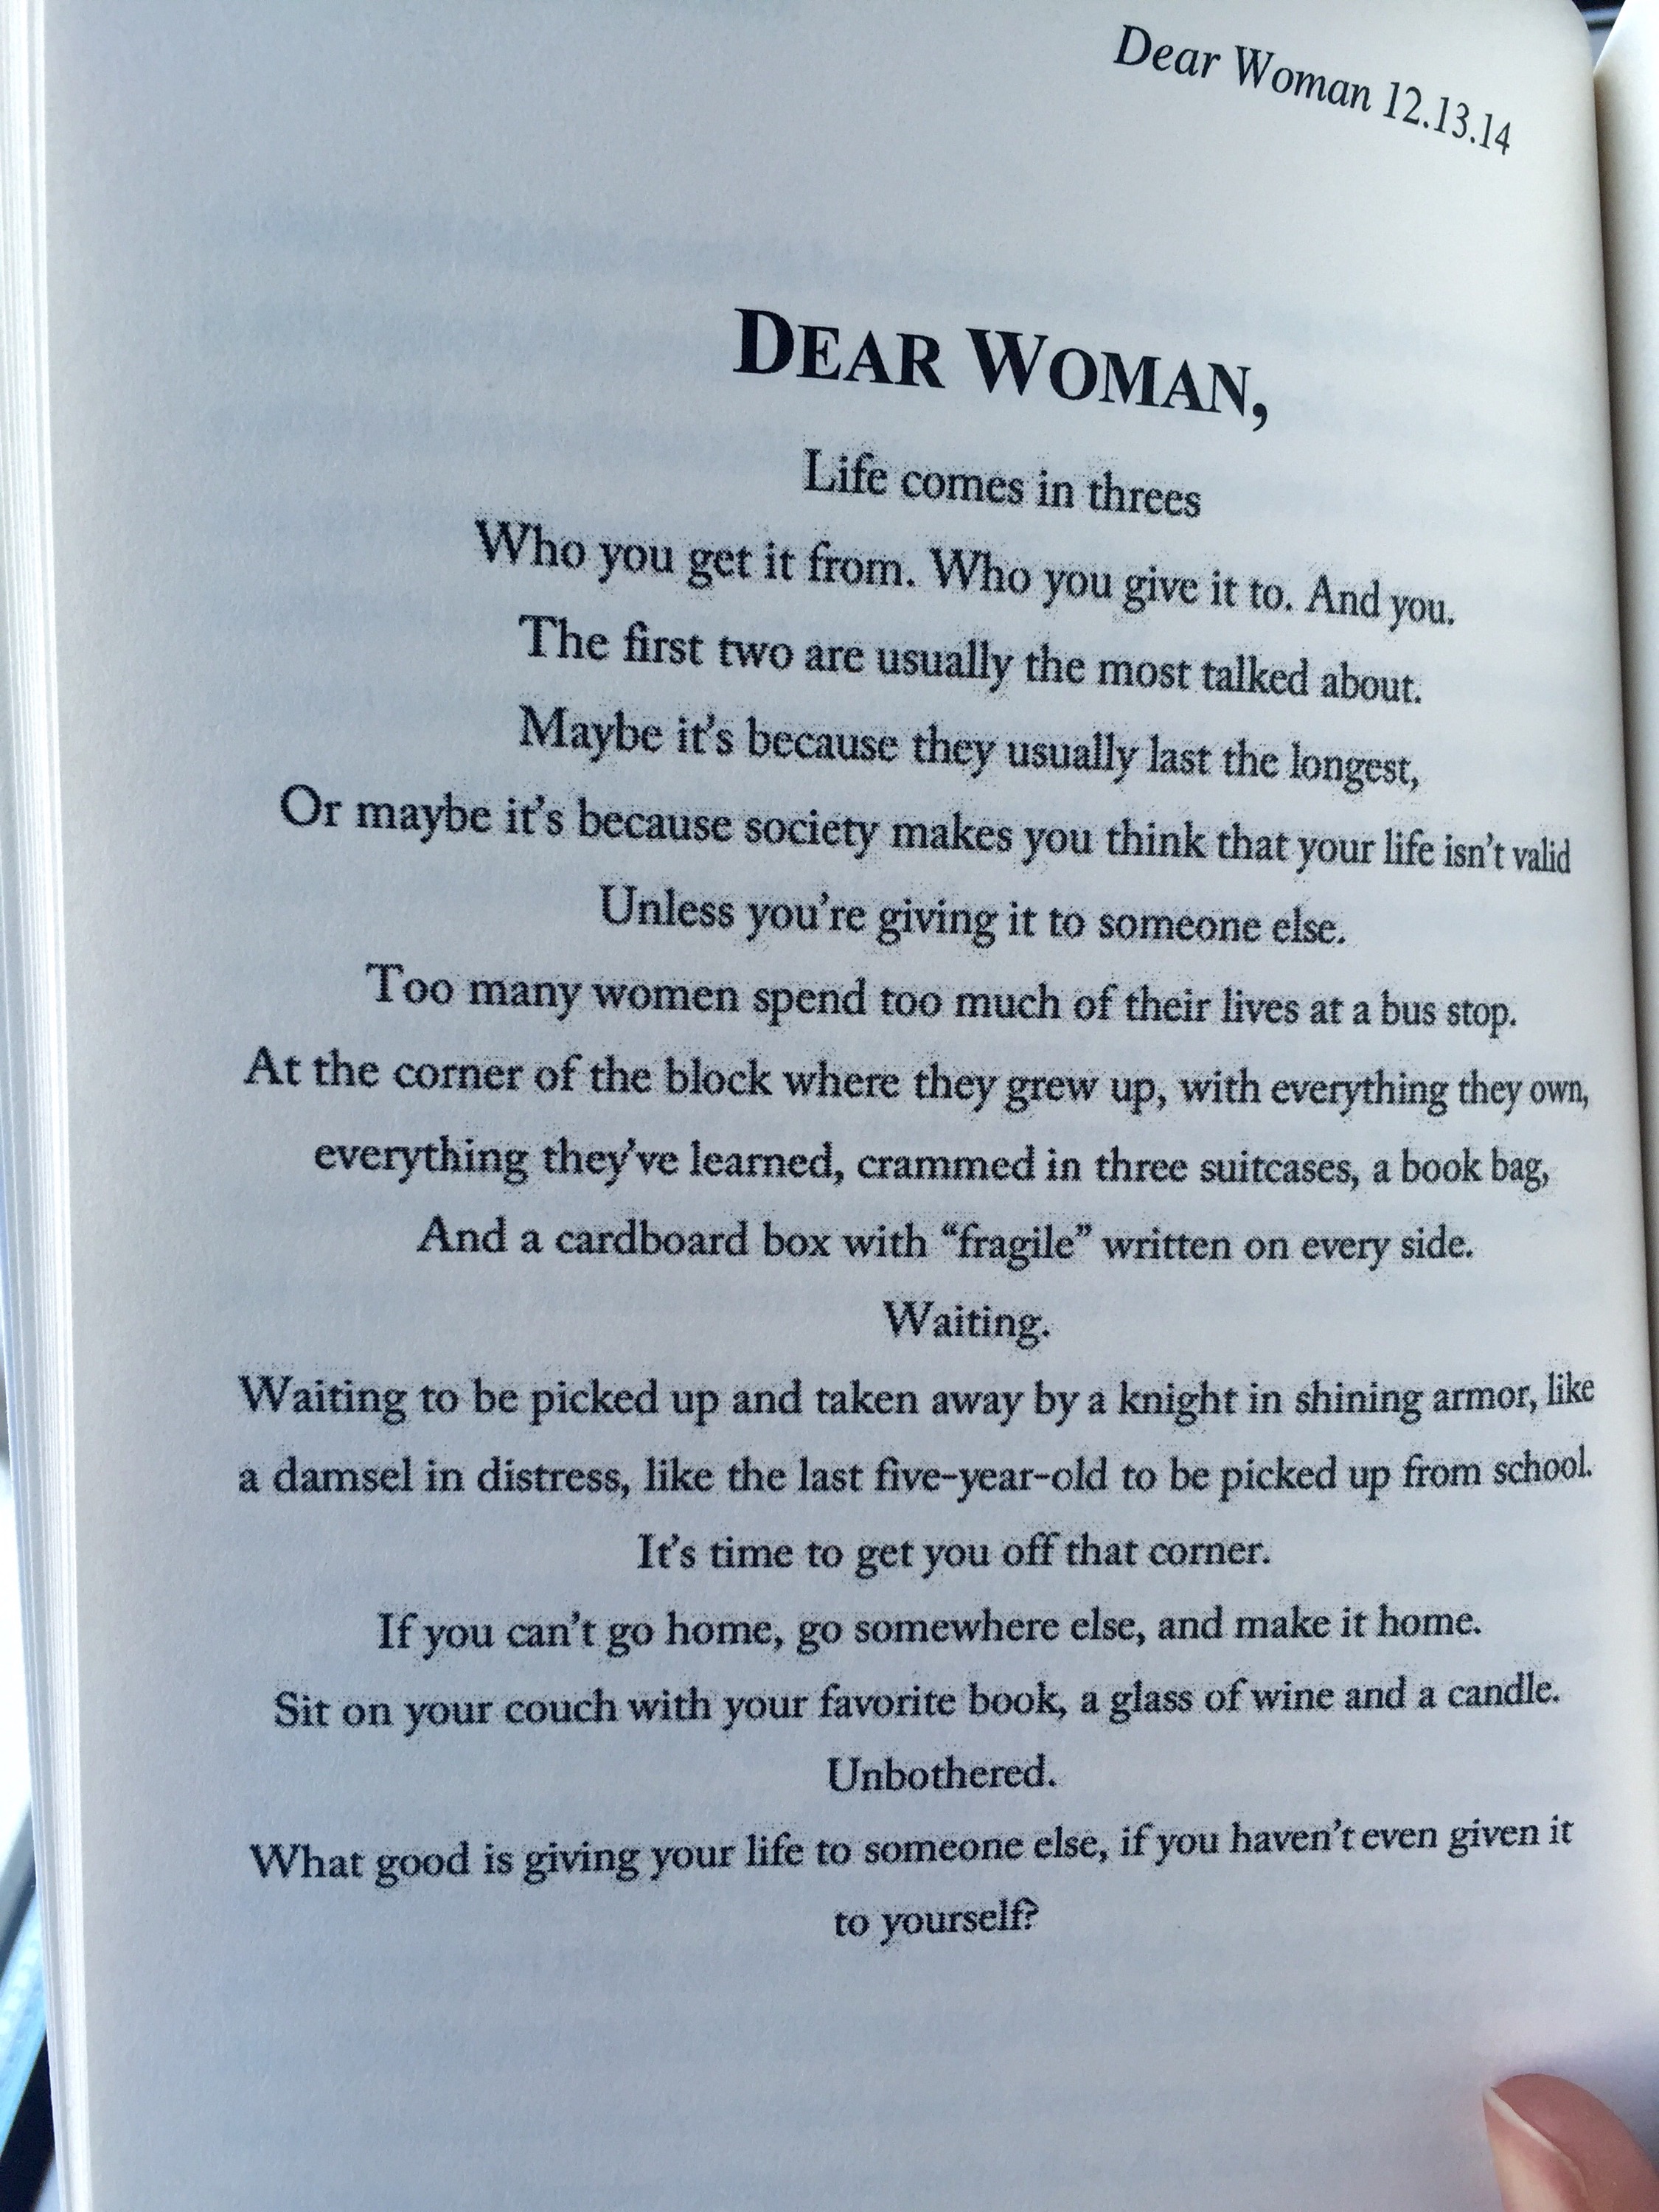 Dear Woman 12.13.14
DEAR WOMAN,
Life comes in threes
Who you get it from. Who you give it to. And you.
The first two are usually the most talked about.
Maybe it's because they usually last the longest,
Or maybe it's because society makes you think that your life isn't valid
Unless you're giving it to someone else.
Too many women spend too much of their lives at a bus stop.
At the corner of the block where they grew up, with everything they own,
everything they've learned, crammed in three suitcases, a book bag,
And a cardboard box with “fragile” written on every side.
Waiting.
Waiting to be picked up and taken away by a knight in shining armor, like
a damsel in distress, like the last five-year-old to be picked up from school.
It's time to get you off that corner.
If you can't go home, go somewhere else, and make it home.
Sit on your couch with your favorite book, a glass of wine and a candle.
Unbothered.
What good is giving your life to someone else, if you haven't even given it
to yourself?